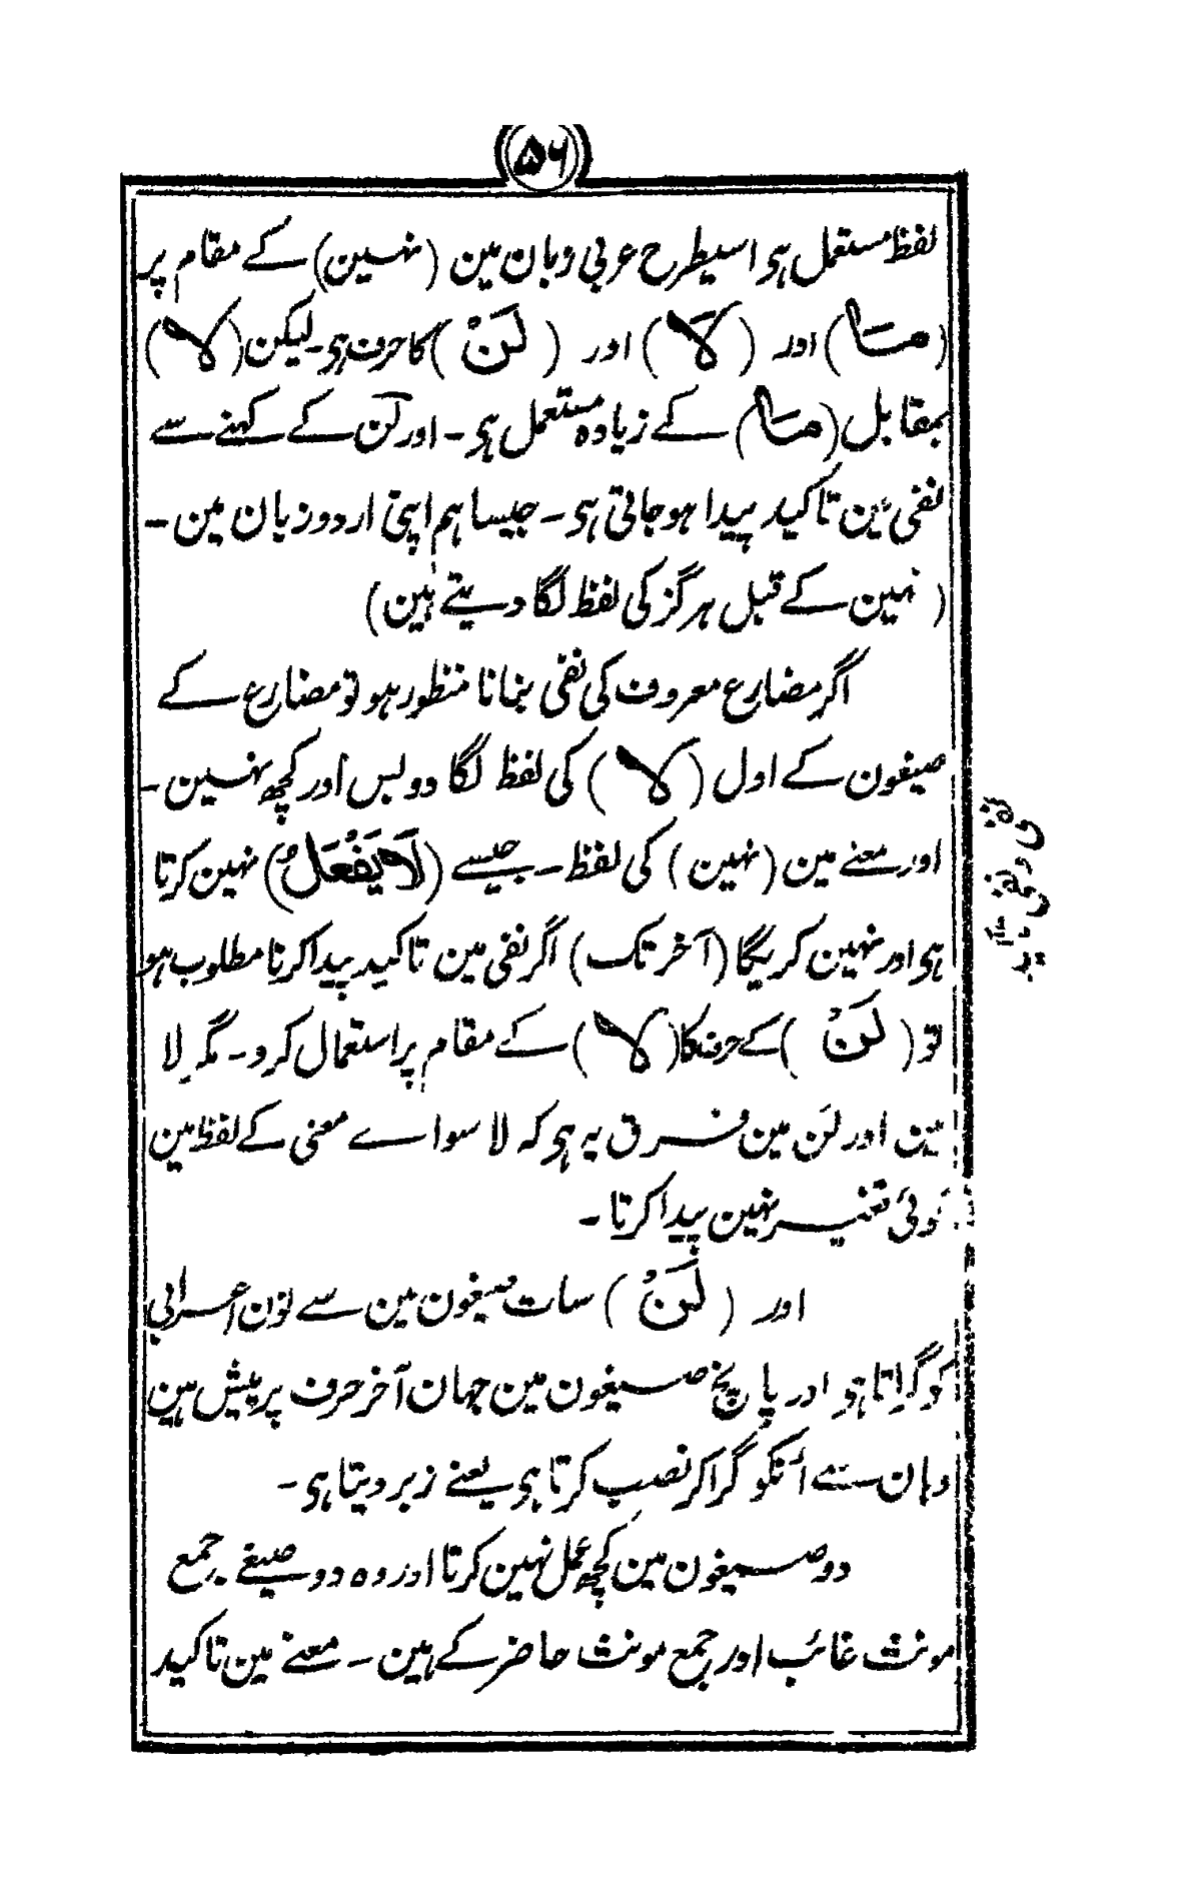 ۵۶
لفظ مستعمل ہی اسیطرح عربی زبان مین (نہین) کے مقام پر
(مَا) اور (لَا) اور (لَنْ) کا حرف ہی۔ لیکن (لا)
بمقابل (مَا) کے زیادہ مستعمل ہی۔ اور لَن کے کہنے سے
نفی مین تاکید پیدا ہو جاتی ہی۔ جیسا ہم اپنی اردو زبان مین۔
(نہین کے قبل ہرگز کی لفظ لگا دیتے ہین)
اگر مضارع معروف کی نفی بنانا منظور ہو تو مضارع کے
صیغون کے اول (لا) کی لفظ لگا دو بس اور کچھ نہین۔
اور معنے مین (نہین) کی لفظ۔ جیسے (لَا یَفْعَلُ) نہین کرتا
ہی اور نہین کریگا (آخر تک) اگر نفی مین تاکید پیدا کرنا مطلوب ہو
تو (لَنْ) کے حرف کا (لا) کے مقام پر استعمال کرو۔ مگر لا
مین اور لَن مین فرق یہ ہی کہ لا سواے معنی کے لفظ مین
کوئی تغییر نہین پیدا کرتا۔
اور (لَنْ) سات صیغون مین سے نون اعرابی
کو گراتا ہی اور پانچ صیغون مین جہان آخر حرف پر پیش ہین
وہان سے اُنکو گرا کر نصب کرتا ہی یعنے زبر دیتا ہی۔
دو صیغون مین کچھ عمل نہین کرتا اور وہ دو صیغے جمع
مونث غائب اور جمع مونث حاضر کے ہین۔ معنے مین تاکید
نفی و نفی تاکید